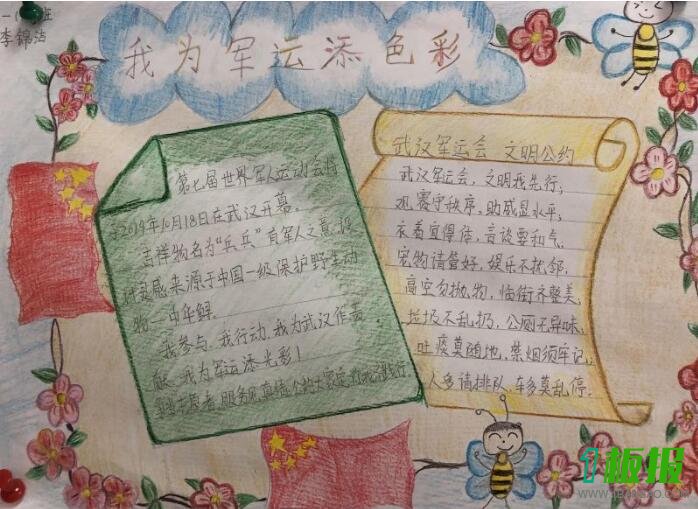 一( )班
李锦洁
我为军运添色彩
第七届世界军人运动会将
2019年10月18日在武汉开幕。
吉祥物名为“兵兵”有军人之意,设
计灵感来源于中国一级保护野生动
物—中华鲟。
我参与,我行动,我为武汉作贡
献、我为军运添光彩!
志愿者,服务
武汉军运会 文明公约
武汉军运会,文明我先行;
观赛守秩序,助威显水平;
衣着宜得体,言谈要和气。
宠物请管好,娱乐不扰邻。
高空勿抛物,临街齐整美,
垃圾不乱扔,公厕无异味。
吐痰莫随地,禁烟须牢记。
人多请排队,车多莫乱停。
1板报